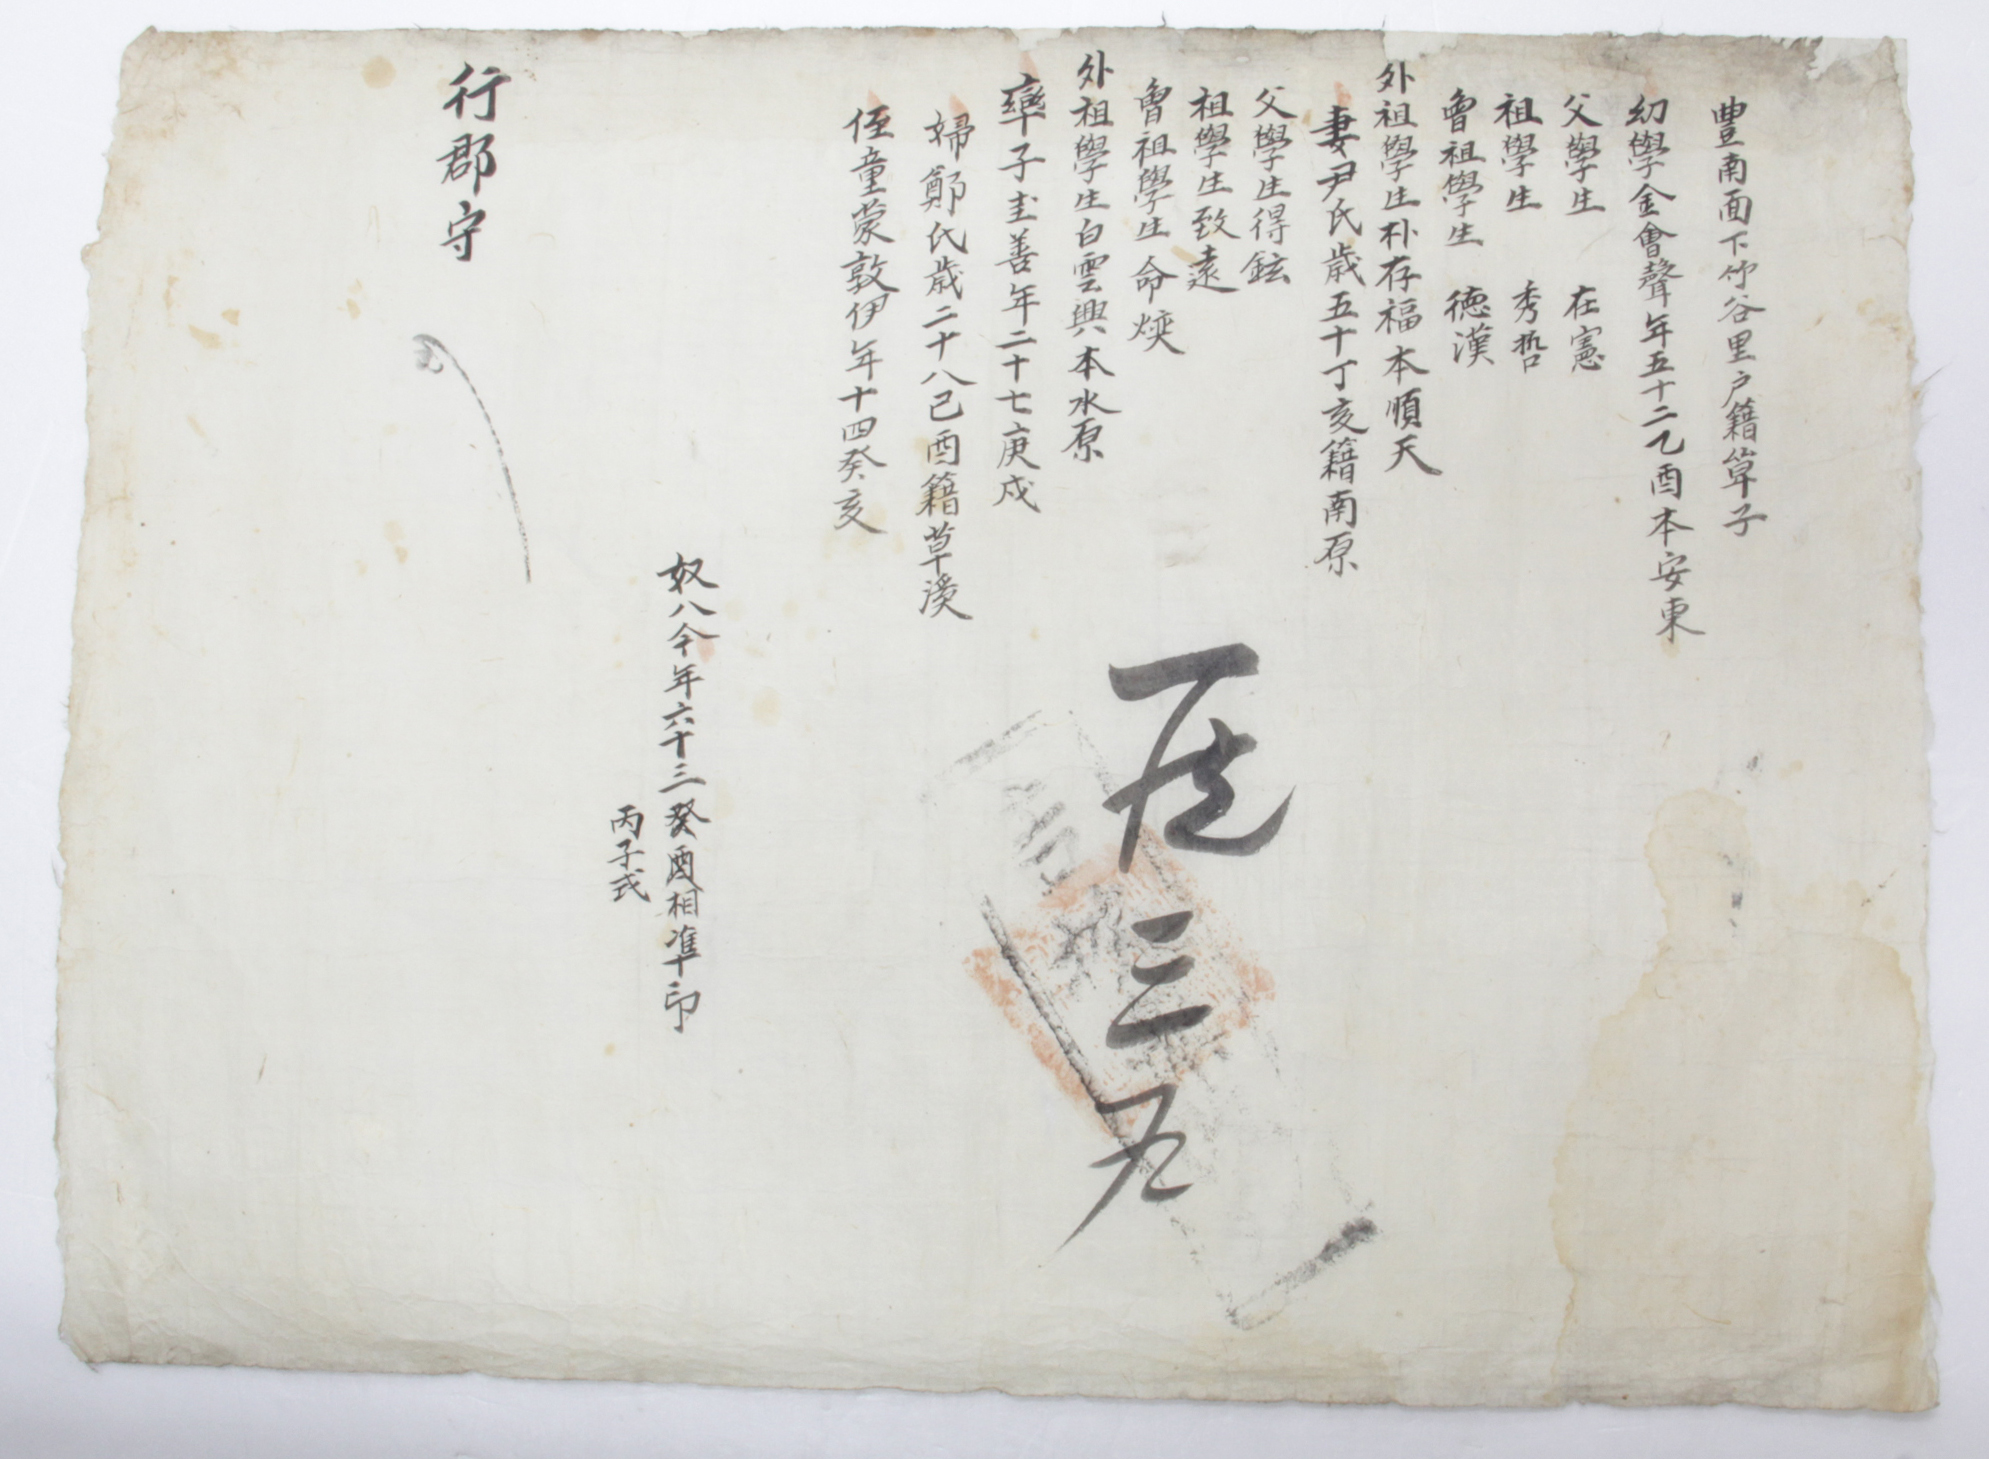 豊南面下竹谷里户籍单子
幼學金會聲年五十二乙酉本安東
父學生 在憲
祖學生 秀哲
曾祖學生 德漢
外祖學生朴存福本順天
妻尹氏歲五十丁亥籍南原
父學生得鉉
祖學生致遠
曾祖學生命
外祖學生白雲興本水原
率子圭善年二十七庚戌
婦鄭氏歲二十八己酉籍草溪
侄童蒙敦伊年十四癸亥
奴八今年六十三癸酉相準印
丙子式
行郡守
三
九